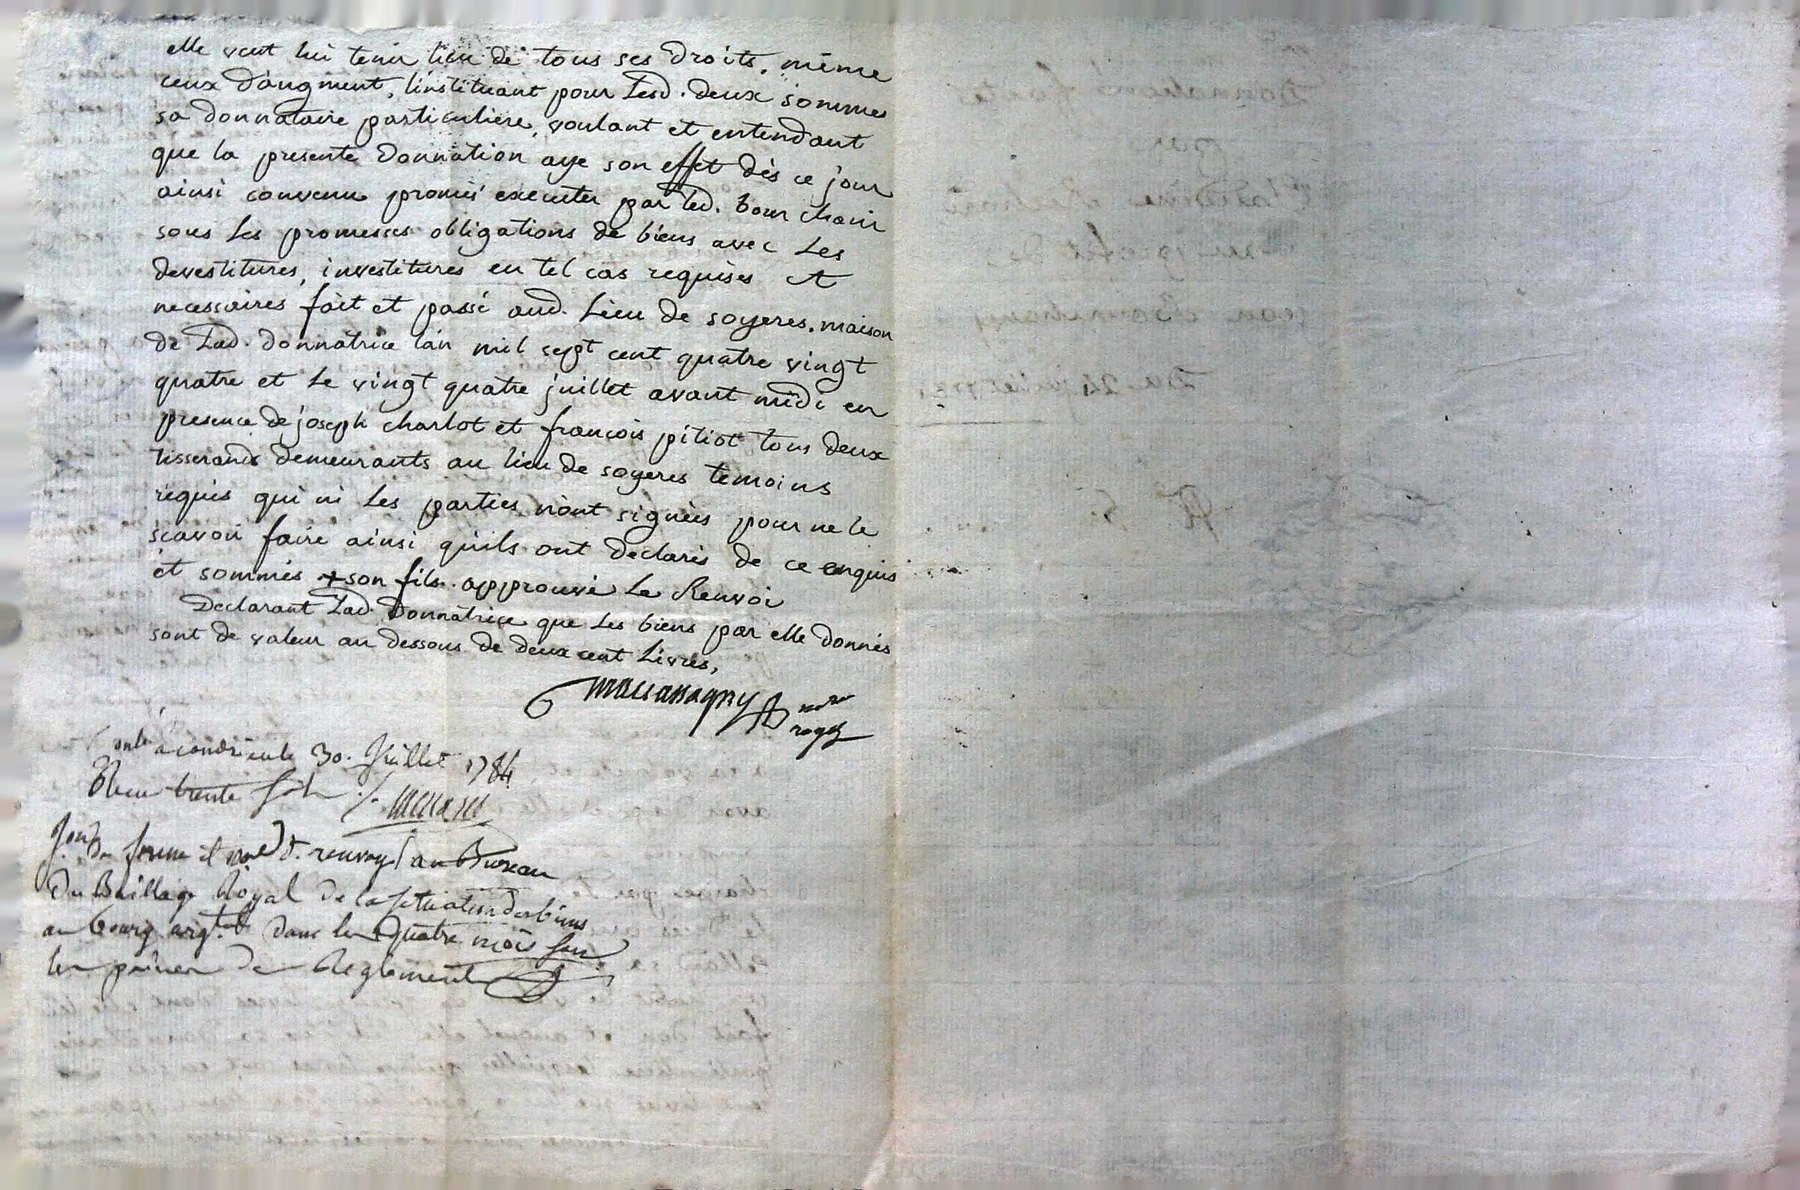 elle veut lui tenir lieu de tous ses droits, même
ceux d'augment, l'instituant pour Lesd. deux sommes
sa donnataire particuliere, voulant et entendant
que la presente donnation aye son effet dès ce jour
ainsi convenu promis executer par Led. bourchanin
sous Les promesses obligations de biens avec Les
devestitures, investitures en tel cas requises et
necessaires fait et passé aud. Lieu de soyeres, maison
de Lad. donnatrice l'an mil sept cent quatre vingt
quatre et Le vingt quatre juillet avant midi en
presence de joseph charlot et francois pitiot tous deux
tisserands demeurants au lieu de soyeres temoins
requis qui ni Les parties n'ont signées pour ne le
scavoir faire ainsi qu'ils ont déclarés de ce enquis
et sommés + son fils. approuvé Le Renvoi
Declarant Lad. Donnatrice que Les biens par elle donnés
sont de valeur au dessous de deux cent Livres,
not.re
Conlé a condrieu le 30. Juillet 1784
Recu trente sols
renvoyé au Bureau
Du Bailliage Royal de la situation des biens
au bourg argt.l dans les quatre mois sous
les peines de Reglement